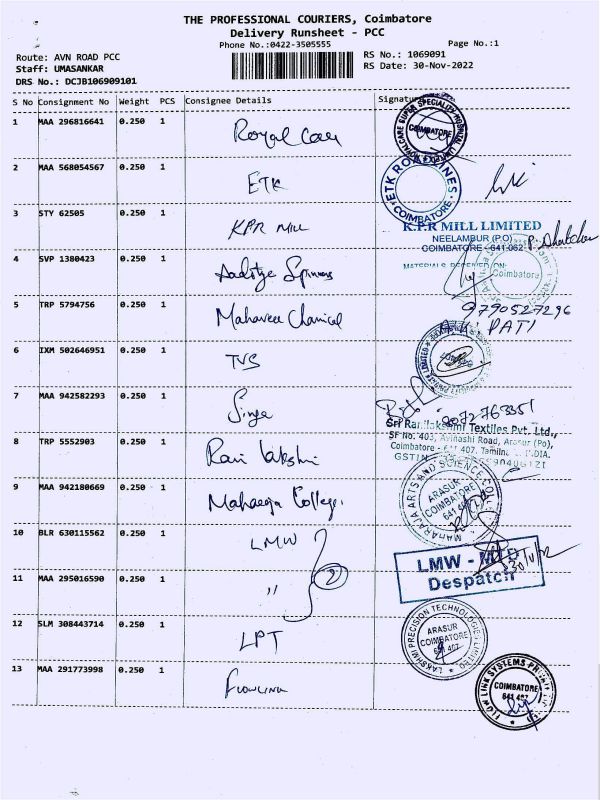 THE PROFESSIONAL COURIERS, Coimbatore
Delivery Runsheet - PCC
Phone No.:0422-3505555
Page No.:1
Route: AVN ROAD PCC
RS No.: 1069091
Staff: UMASANKAR
RS Date: 30-Nov-2022
DRS No.: DCJB106909101
S No Consignment No Weight PCS Consignee Details Signature
1 MAA 296816641 0.250 1 Royal Care
COIMBATORE
2 MAA 568054567 0.250 1 ETK
ETK ROADLINES
COIMBATORE
3 STY 62505 0.250 1 KPR Mill
K.P.R MILL LIMITED
NEELAMBUR (P.O)
COIMBATORE - 641 062
MATERIALS RECEIVED ON:
4 SVP 1380423 0.250 1 Aaditya Spinners
Coimbatore
5 TRP 5794756 0.250 1 Mahaveer Chemical
9790527296
PATI
6 IXM 502646951 0.250 1 TVS
7 MAA 942582293 0.250 1 Singa
9072763351
8 TRP 5552903 0.250 1 Rani Lakshmi
Sri Ranilakshmi Textiles Pvt. Ltd.,
SF No. 403, Avinashi Road, Arasur (Po),
Coimbatore - 641 407. Tamilnadu, INDIA.
GSTIN
9 MAA 942180669 0.250 1 Maharaja College
MAHARAJA ARTS AND SCIENCE COLLEGE
ARASUR
COIMBATORE
641 407
10 BLR 630115562 0.250 1 LMW
LMW - MTD
Despatch
30/11/22
11 MAA 295016590 0.250 1 "
12 SLM 308443714 0.250 1 LPT
LAKSHMI PRECISION TECHNOLOGIES LIMITED
ARASUR
COIMBATORE
641 407
13 MAA 291773998 0.250 1 Flowlink
FLOW LINK SYSTEMS PRIVATE LIMITED
COIMBATORE
641 407